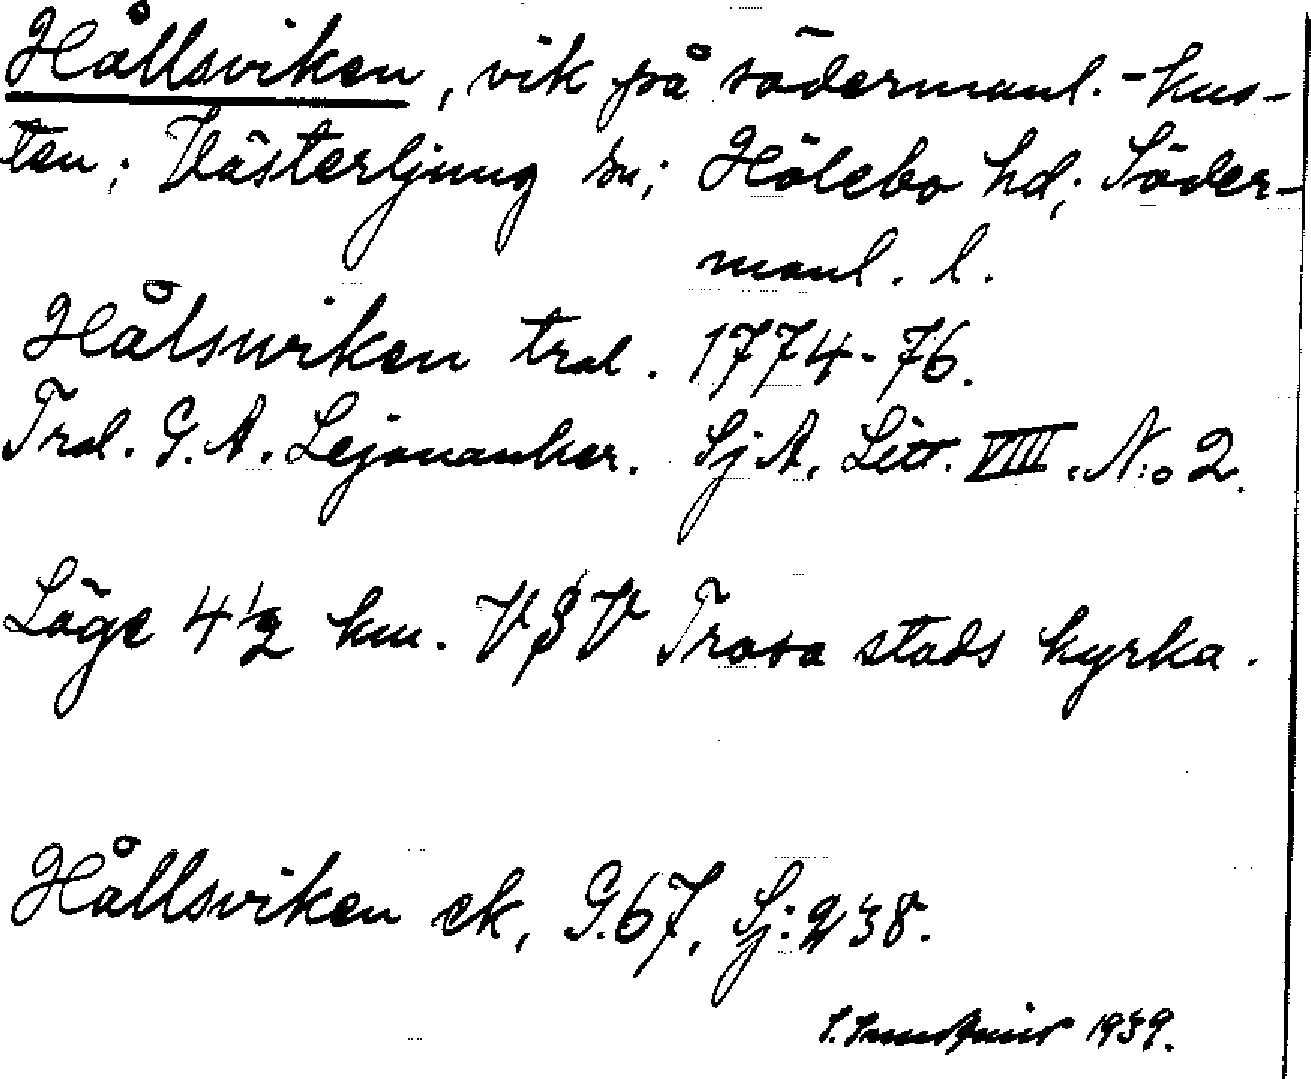 Hållsviken, vik på södermanl.-kus-
ten; Västerljung sn; Hölebo hd; Söder-
manl. l.
Hålswiken tral. 1774-76.
Tral. G. A. Lejonanker. Sj A. Litt. VIII. N:o 2.
Läge 4 1/2 km. V S V Trosa stads kyrka.
Hållsviken ek, G.67, Sj: 238.
1939.